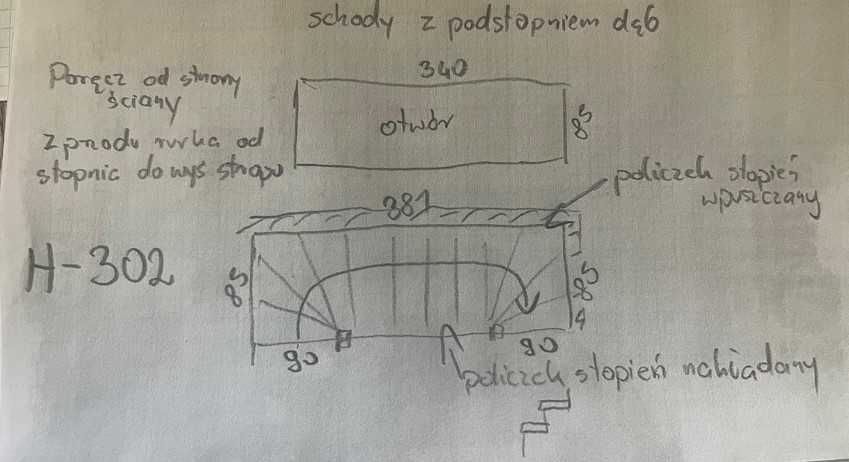 schody z podstopniem dąb
Poręcz od strony
ściany
z przodu rurka od
stopnic do wys stropu
340
otwór
85
policzek stopień
wpuszczany
387
H-302
85
85
4
90
90
policzek stopień nakładany